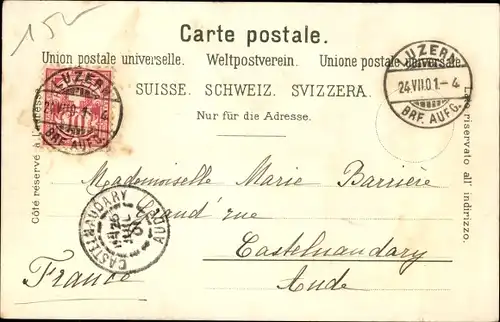 15
Carte postale.
Union postale universelle. Weltpostverein. Unione postale universale.
SUISSE. SCHWEIZ. SVIZZERA.
Nur für die Adresse.
Côté réservé à l'adresse.
Lato riservato all' indirizzo.
LUZERN
24.VII.01.-4
BRF. AUFG.
LUZERN
24.VII.01.-4
BRF. AUFG.
Mademoiselle Marie Barrière
Grand' rue
Castelnaudary
Aude
France
CASTELNAUDARY
AUDE